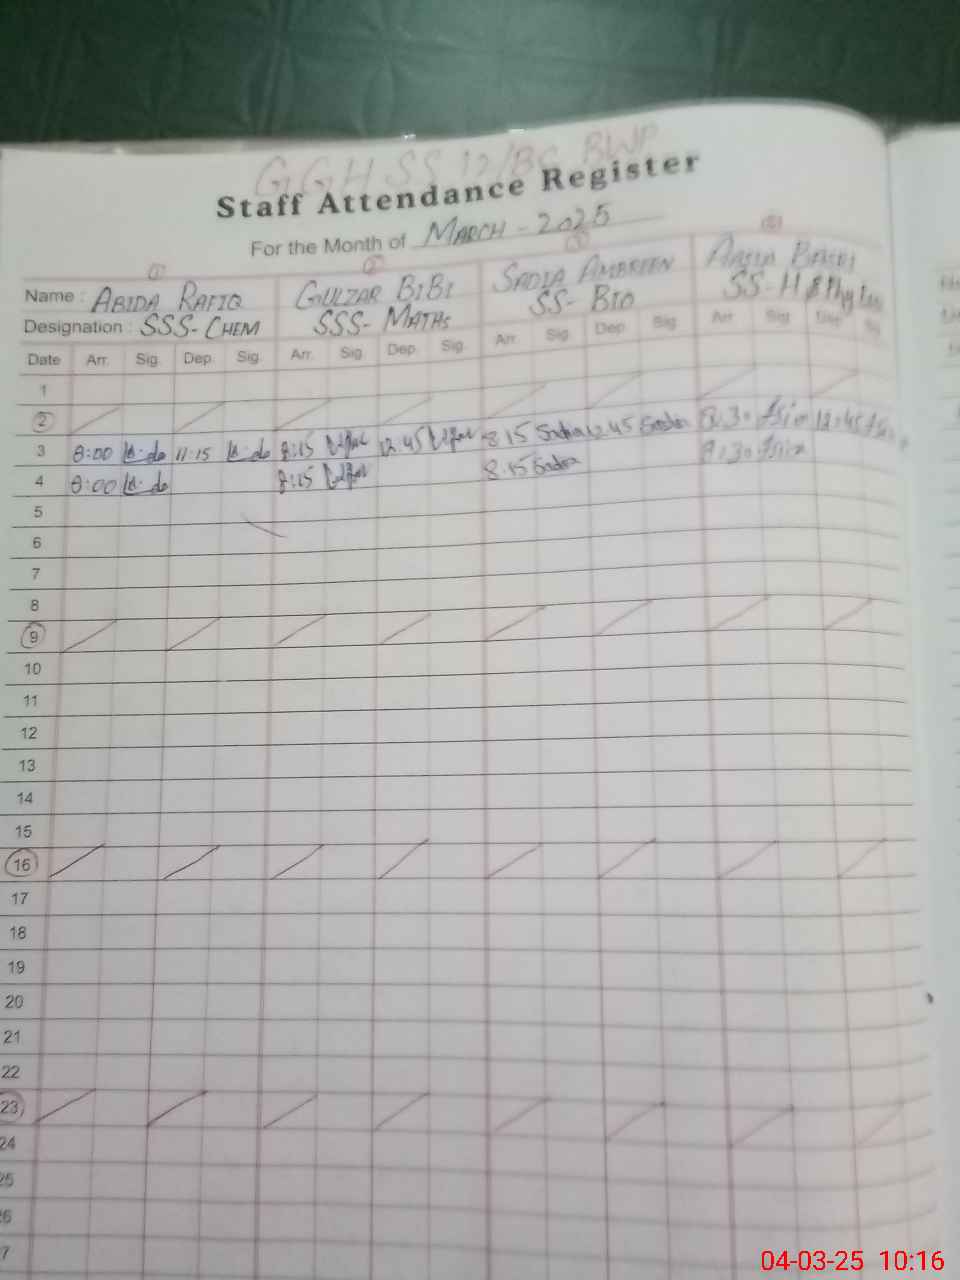 GGHSS 12/BC BWP
Staff Attendance Register
For the Month of MARCH - 2025
① ② ③ ④
Name : ABIDA RAFIQ GULZAR BIBI SADIA AMBREEN
Designation : SSS-CHEM SSS-MATHS SS-BIO SS-H &
Date Arr. Sig. Dep. Sig. Arr. Sig. Dep. Sig. Arr. Sig. Dep. Sig. Arr. Sig. Dep. Sig.
1
2
3 8:00 11:15 8:15 12:45 8:15 Sadia 12.45 Sadia 8:30 12:45
4 8:00 8:15 8:15 Sadia 8:30
5
6
7
8
9
10
11
12
13
14
15
16
17
18
19
20
21
22
23
24
25
26
27
04-03-25 10:16